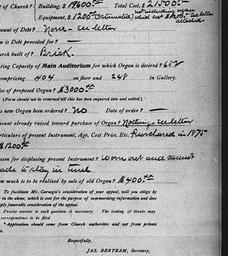 of Church? Building, $19600.00 Total Cost, $21500.00
Equipment, $1200 (Estimated) not including organ
which cost $1200. see letter
attached.
mount of Debt? None - see letter
is Debt provided for? —
urch built of? Brick.
ting Capacity of Main Auditorium for which Organ is desired? 652
omprising 404 on floor and 248 in Gallery.
ice of proposed Organ? $3000.00
(Form should not be returned till this has been enquired into and settled.)
new Organ been ordered? No Date of order? —
ount already raised toward purchase of Organ? Nothing - see letter
rticulars of present Instrument, Age, Cost Price, Etc. Purchased in 1875
$1200.00
ason for displacing present Instrument? Worn out and cannot
ade to stay in tune
w much is to be realised by sale of old Organ? $400.00
To facilitate Mr. Carnegie's consideration of your appeal, will you oblige by
in the above, which is sent for the purpose of summarising information and does
ply favorable consideration of the appeal.
Precise answer to each question is necessary. The leaving of blanks may
correspondence to be filed.
Application should come from Church authorities and not from private
Respectfully,
JAS. BERTRAM, Secretary,